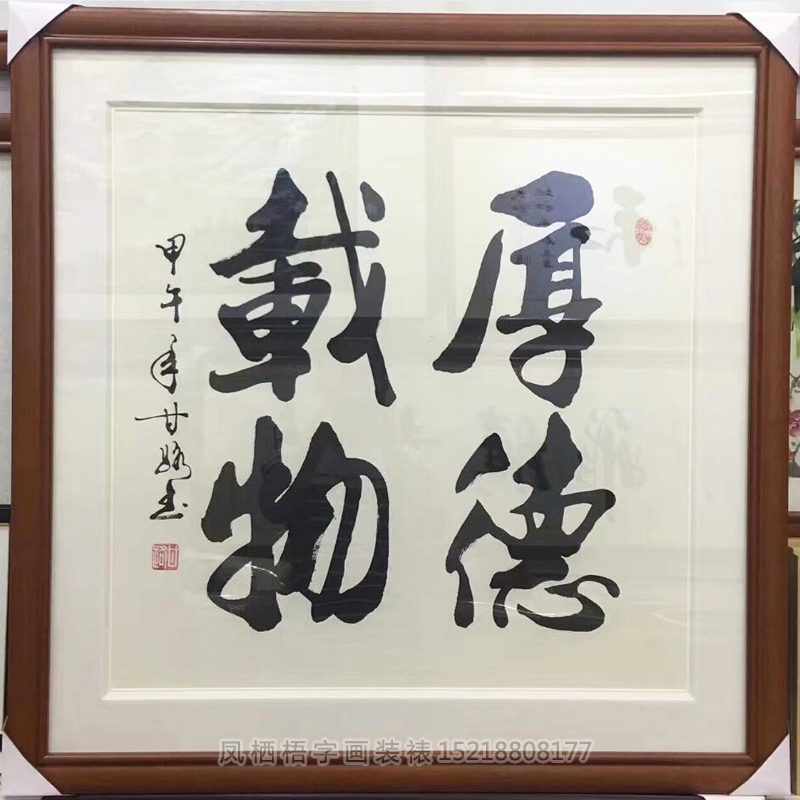 厚德
載物
甲午年甘书
凤栖梧字画装裱15218808177